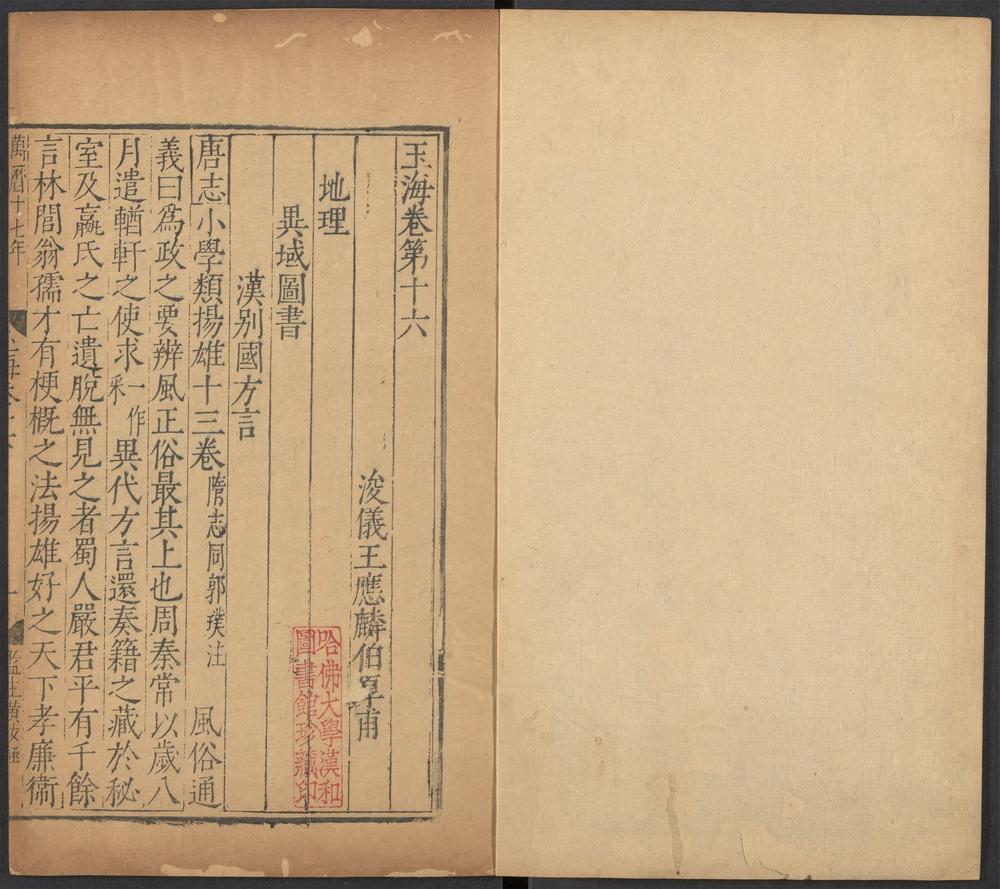 玉海卷第十六
浚儀王應麟伯厚甫
地理
異域圖書
漢別國方言
唐志小學類揚雄十三卷隋志同郭璞注 風俗通
義曰為政之要辨風正俗最其上也周秦常以歲八
月遣輶軒之使求一作采異代方言還奏籍之藏於秘
室及嬴氏之亡遺脫無見之者蜀人嚴君平有千餘
言林閭翁孺才有梗概之法揚雄好之天下孝廉衛
萬曆十七年
哈佛大學漢和
圖書館珍藏印